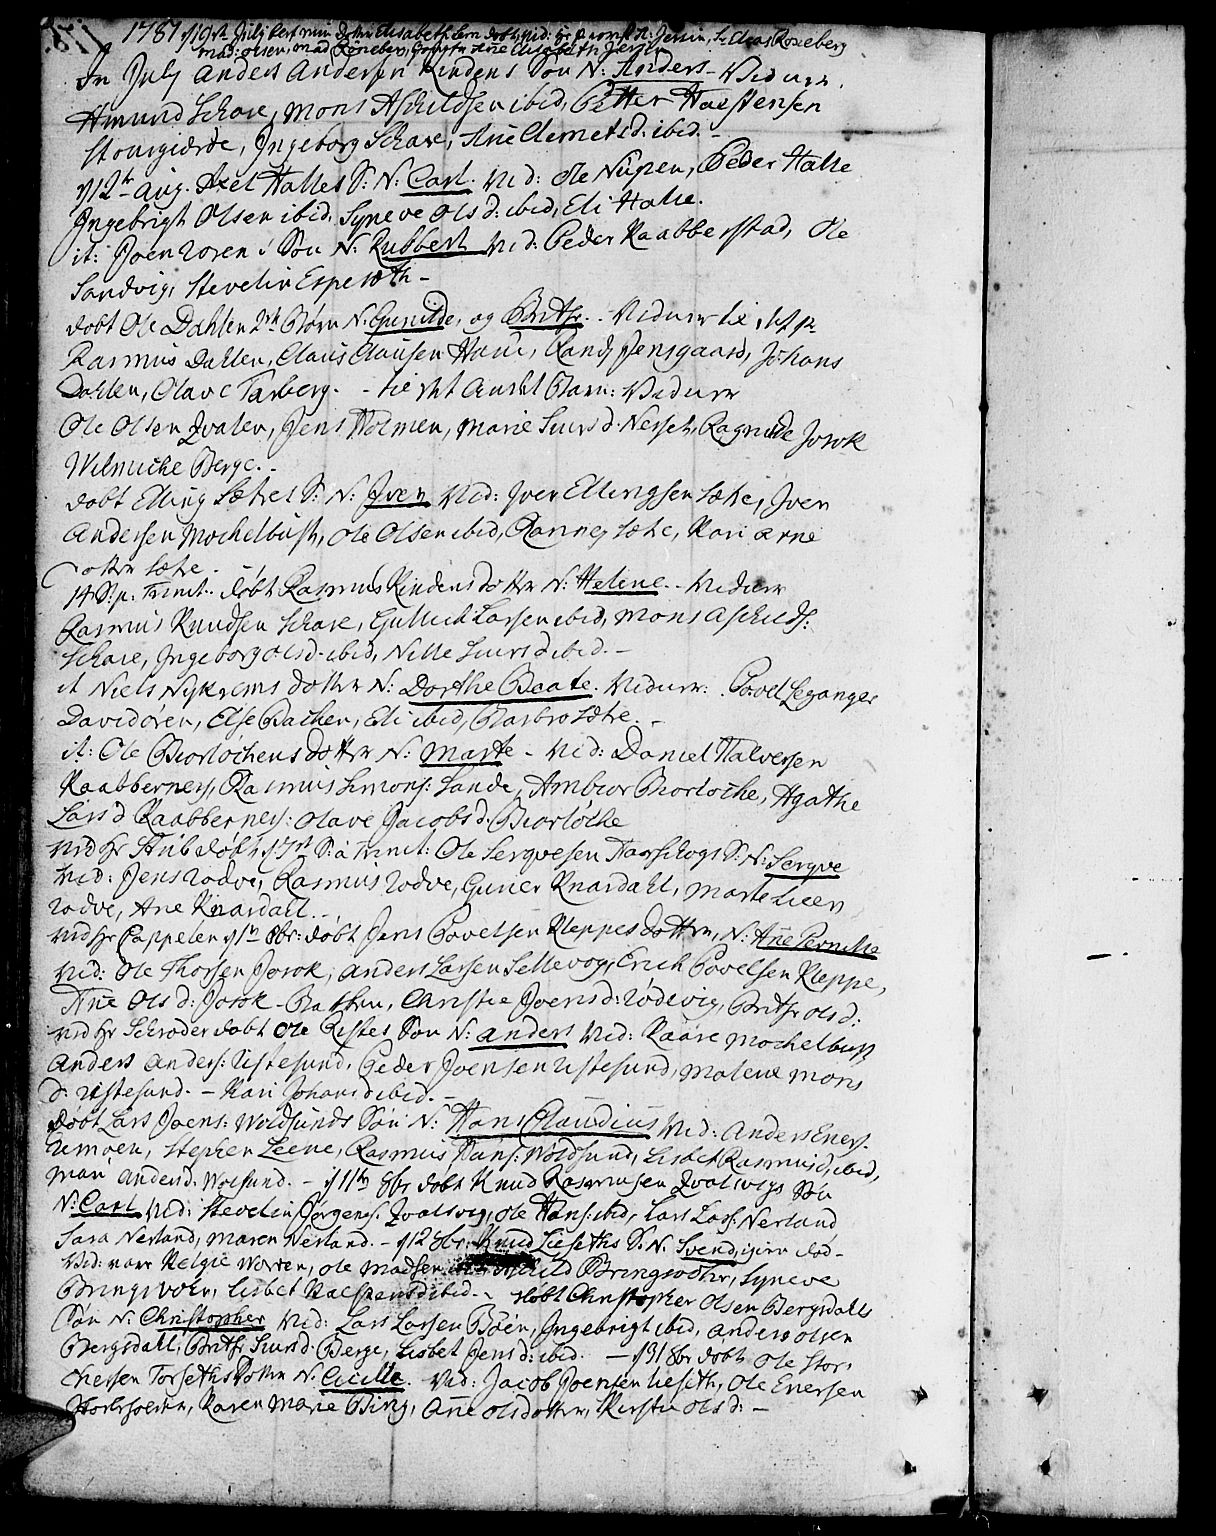 1787 19de July min datter Elisabeth Vid: Hr Roseberg
mad: Olsen, mad Röneberg, Ane Elisabeth
In July Anders Andersen Rindens Søn N: Anders - Vidner.
Amund Schare, Mons Aschildsen ibid, Petter Halstensen
Stourgierde, Ingeborg Schare, Ane Clemetsd. ibid. -
12te Aug. Axel Halles S: N: Carl. Vid: Ole Nupen, Peder Halle
Ingebrigt Olsen ibid, Syneve Olsd: ibid, Eli Halle.
it: Joen Søn N: Rubbert Vid: Peder Raabberstad, Ole
Sandvig, Stevelin Esperöth -
dobt Ole Dahlen 2de Børn N. Gunilde, og Brithe. Vidner til
Rasmus Dahlen, Claus Clausen Rand, Jensgaard, Johans
Dahlen, Olave Tarberg. - til det andet Barn: Vidner
Ole Olsen Qvalen, Jens Holmen, Marie Siursd. Nerset, Ragnilde Josok
Wilmiche Berge. -
dobt Elling Sætres S: N: Iver Vid: Iver Ellingsen Sætre, Iver
Andersen Mochelbust, Ole Olsen ibid, Ranney Sætre, Kari Arne
dotter Sætre.
14 S: p. Trinit.. dobt Rasmus Rindens dotter N: Heline. - Vidner
Rasmus Knudsen Schare, Gullick Larsen ibid, Mons Aschilds:
Schare, Ingeborg Olsd. ibid, Nille Siursd ibid. -
it Niels Nykrems dotter N: Dorthe Beate. Vidner: Povel Leganger
Davidøren, Else Bachen, Eli ibid, Barbro Sætre. -
it: Ole Biørløchens dotter N: Marte - Vid: Daniel Halversen
Raabbernes, Rasmus Simons: Sande, Ambiør Biørløche, Agathe
Larsd Raabbernes: Olave Jacobsd. Biørløche
Ved Hr Stub dobt S: a Trinit: Ole Serqvesen S: N: Serqve
Vid: Jens Rødve, Rasmus Rødve, Guner Knardahl, Marte Lien
Rødve, Ane Knardahl. -
Ved Hr Cappelen 8br: dobt Jens Povelsen Kleppes dotter, N: Ane Pernille
Vid: Ole Thorsen Josok, Anders Larsen Sellevog, Erich Povelsen Kleppe,
Ane Olsd: Josok - Bathen, Christie Joensd: Rødevig, Brithe Olsd:
Ved Hr Schrøder dobt Ole Ristes Søn N: Anders Vid: Kaare Mochelbust
Anders Anders: Ristesund, Peder Joensen Ristesund, Malene Mons
d: Ristesund. - Kari Johansd ibid. -
Dobt Lars Joens: Woldsunds Søn N: Hans Claudius Vid: Anders Eners.
Remøen, Stephen Leene, Rasmus Hans: Woldsund, Lisbet Rasmusd, ibid,
Mari Andersd: Wolsund. - 11te 8br dobt Knud Rasmusen Qvalvigs Søn
N: Carl Vid: Stevelin Jørgens: Qvalsvig, Ole Hans: ibid, Lars Lars: Nerland
Sara Nerland, Maren Nerland. - 12 8br. Knud Lieseths S. N. Svend, hjem døb -
Vid: Helgie Worren, Ole Madsen Bringsvohr, Syneve
Bringsvohr, Lisbet ibid. - dobt Christopher Olsen Bergsdals
Søn N: Christopher Vid: Lars Larsen Böen, Ingebrigt ibid, Anders Olsen
Bergsdall, Brithe Siursd. Berge, Lisbet Jensd: ibid. - 31 8br dobt Ole Stor
chersen Torseths dotter N. Cicille. Vid: Jacob Joensen Lieseth, Ole Enersen
Karen Marie Bing, Ane Olsdotter, Kirsti Olsd: -